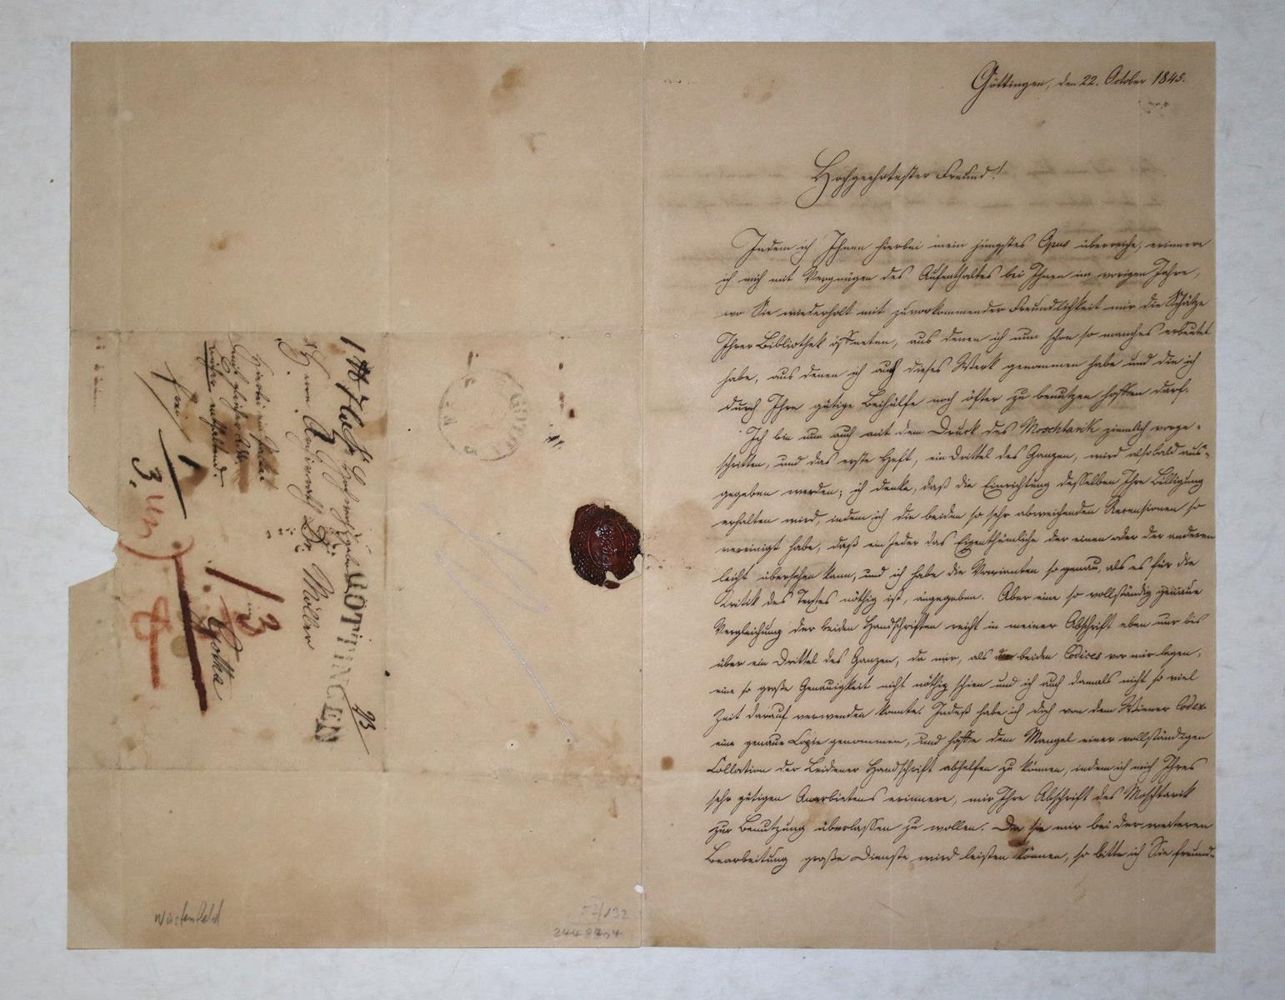 Göttingen, den 22. October 1845.
Hochgeehrtester Freund!
Indem ich Ihnen hierbei mein jüngstes Opus überreiche, erinnere
ich mich mit Vergnügen des Aufenthaltes bei Ihnen im vorigen Jahre,
wo Sie wiederholt mit zuvorkommender Freundlichkeit mir die Schätze
Ihrer Bibliothek öffneten, aus denen ich nun schon so manches erbeutet
habe, aus denen ich auch dieses Werk genommen habe und die ich
durch Ihre gütige Beihülfe noch öfter zu benutzen hoffen darf.
Ich bin nun auch mit dem Druck des Moschtarik ziemlich vorge-
schritten, und das erste Heft, ein Drittel des Ganzen, wird alsbald aus-
gegeben werden; ich denke, daß die Einrichtung desselben Ihre Billigung
erhalten wird, indem ich die beiden so sehr abweichenden Recensionen so
vereinigt habe, daß ein Jeder das Eigenthümliche der einen oder der anderen
leicht übersehen kann, und ich habe die Varianten so genau, als es für die
Kritik des Textes nöthig ist, angegeben. Aber eine so vollständig genaue
Vergleichung der beiden Handschriften reicht in meiner Abschrift eben nur bis
über ein Drittel des Ganzen, da mir, als die beiden Codices vor mir lagen,
eine so große Genauigkeit nicht nöthig schien und ich auch damals nicht so viel
Zeit darauf verwenden konnte. Indeß habe ich doch von dem Wiener Codex
eine genaue Copie genommen, und hoffe dem Mangel einer vollständigen
Collation der Leidener Handschrift abhelfen zu können, indem ich mich Ihres
sehr gütigen Anerbietens erinnere, mir Ihre Abschrift des Moschtarik
zur Benutzung überlassen zu wollen. Da sie mir bei der weiteren
Bearbeitung große Dienste wird leisten können, so bitte ich Sie freund-
Dr. Möller
Gotha
frei
GOTTINGEN
23
Wüstenfeld